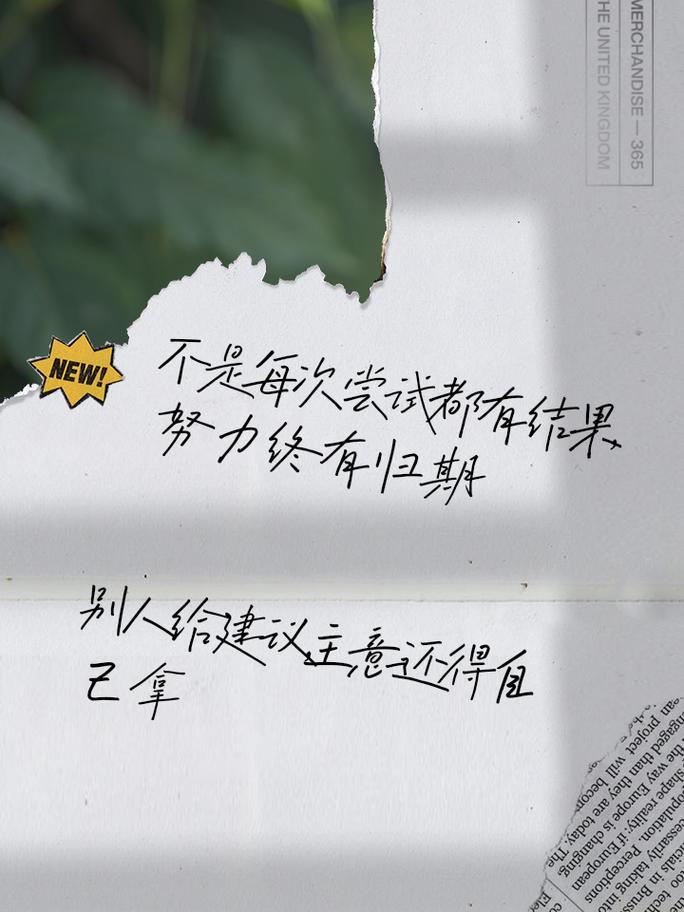 MERCHANDISE — 365
THE UNITED KINGDOM
NEW!
不是每次尝试都有结果
努力终有归期
别人给建议主意还得自
己拿
project will become
engaged than they are today. The
the way Europe is changing
shape reality: if European
population. Perceptions
necessarily taking into